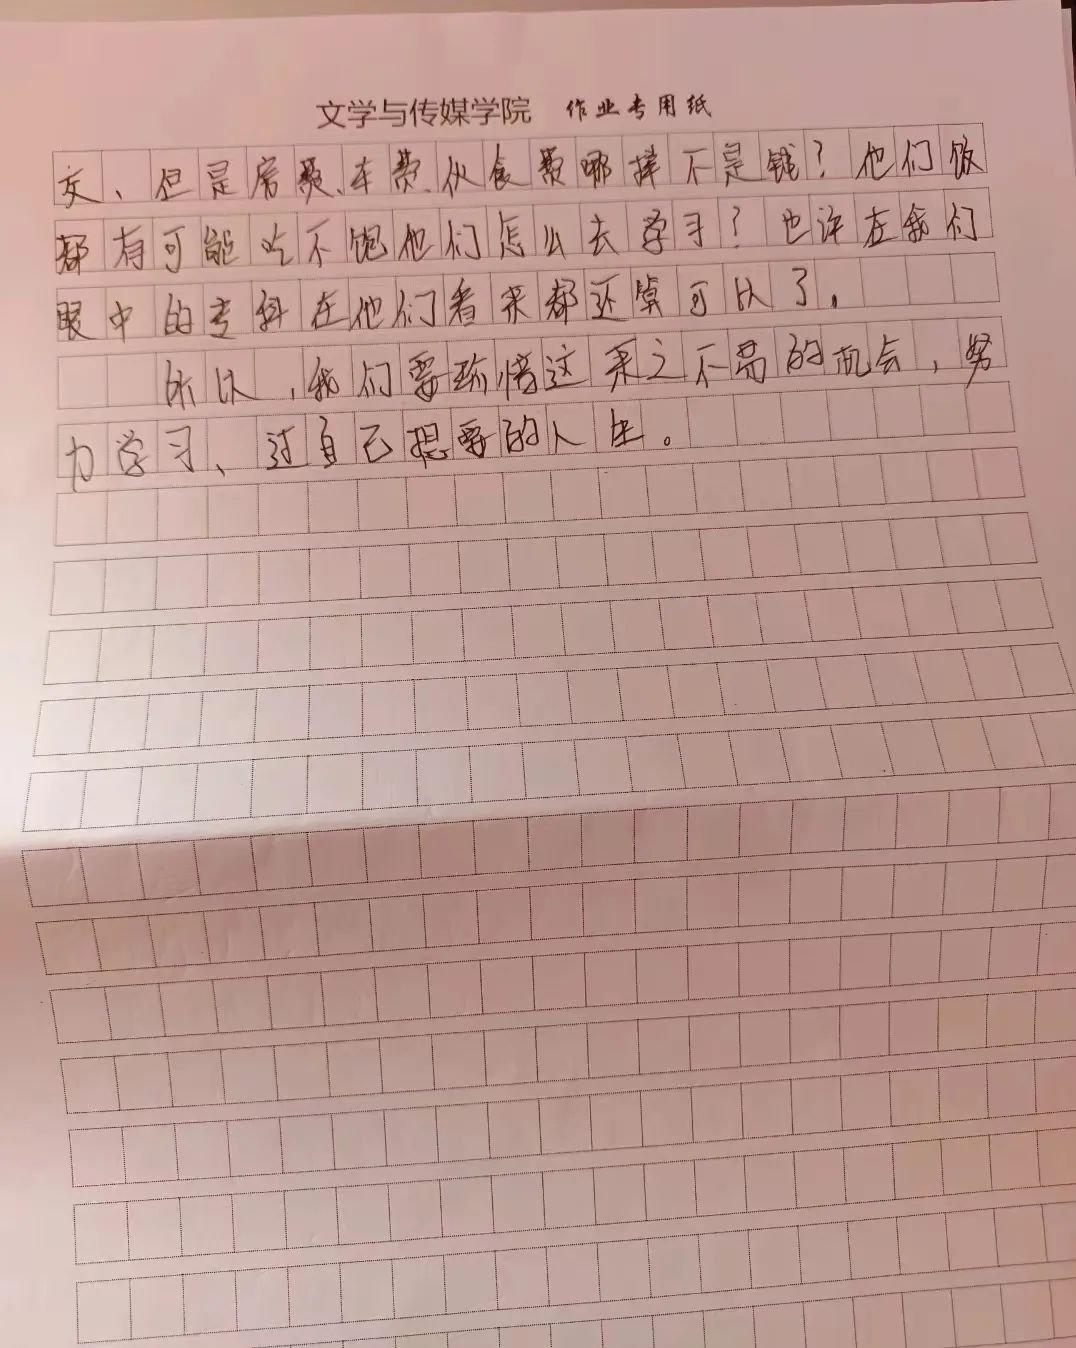 文学与传媒学院 作业专用纸
交、但是房费、车费、伙食费哪择不是钱？他们饭
都有可能吃不饱他们怎么去学习？也许在我们
眼中的专科在他们看来都还算可以了。
所以，我们要珍惜这来之不易的机会，努
力学习、过自己想要的人生。